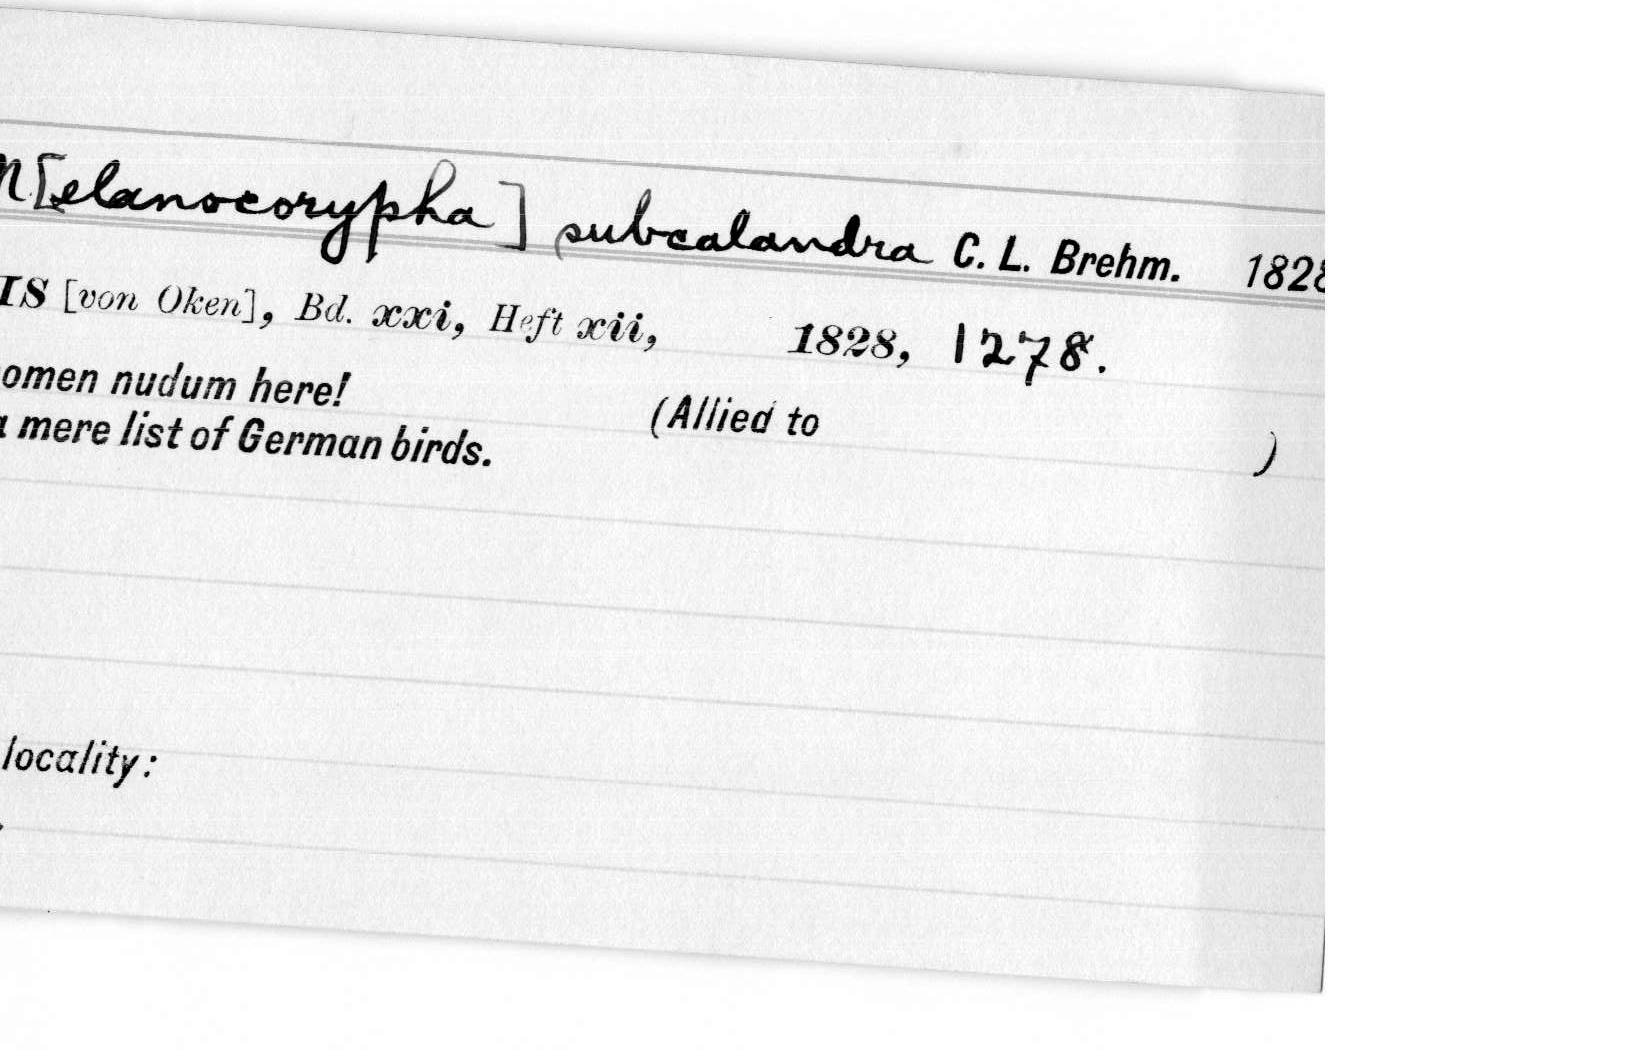 M[elanocorypha] subcalandra C. L. Brehm. 1828
IS [von Oken], Bd. xxi, Heft xii, 1828, 1278.
omen nudum here! (Allied to )
a mere list of German birds.
locality: